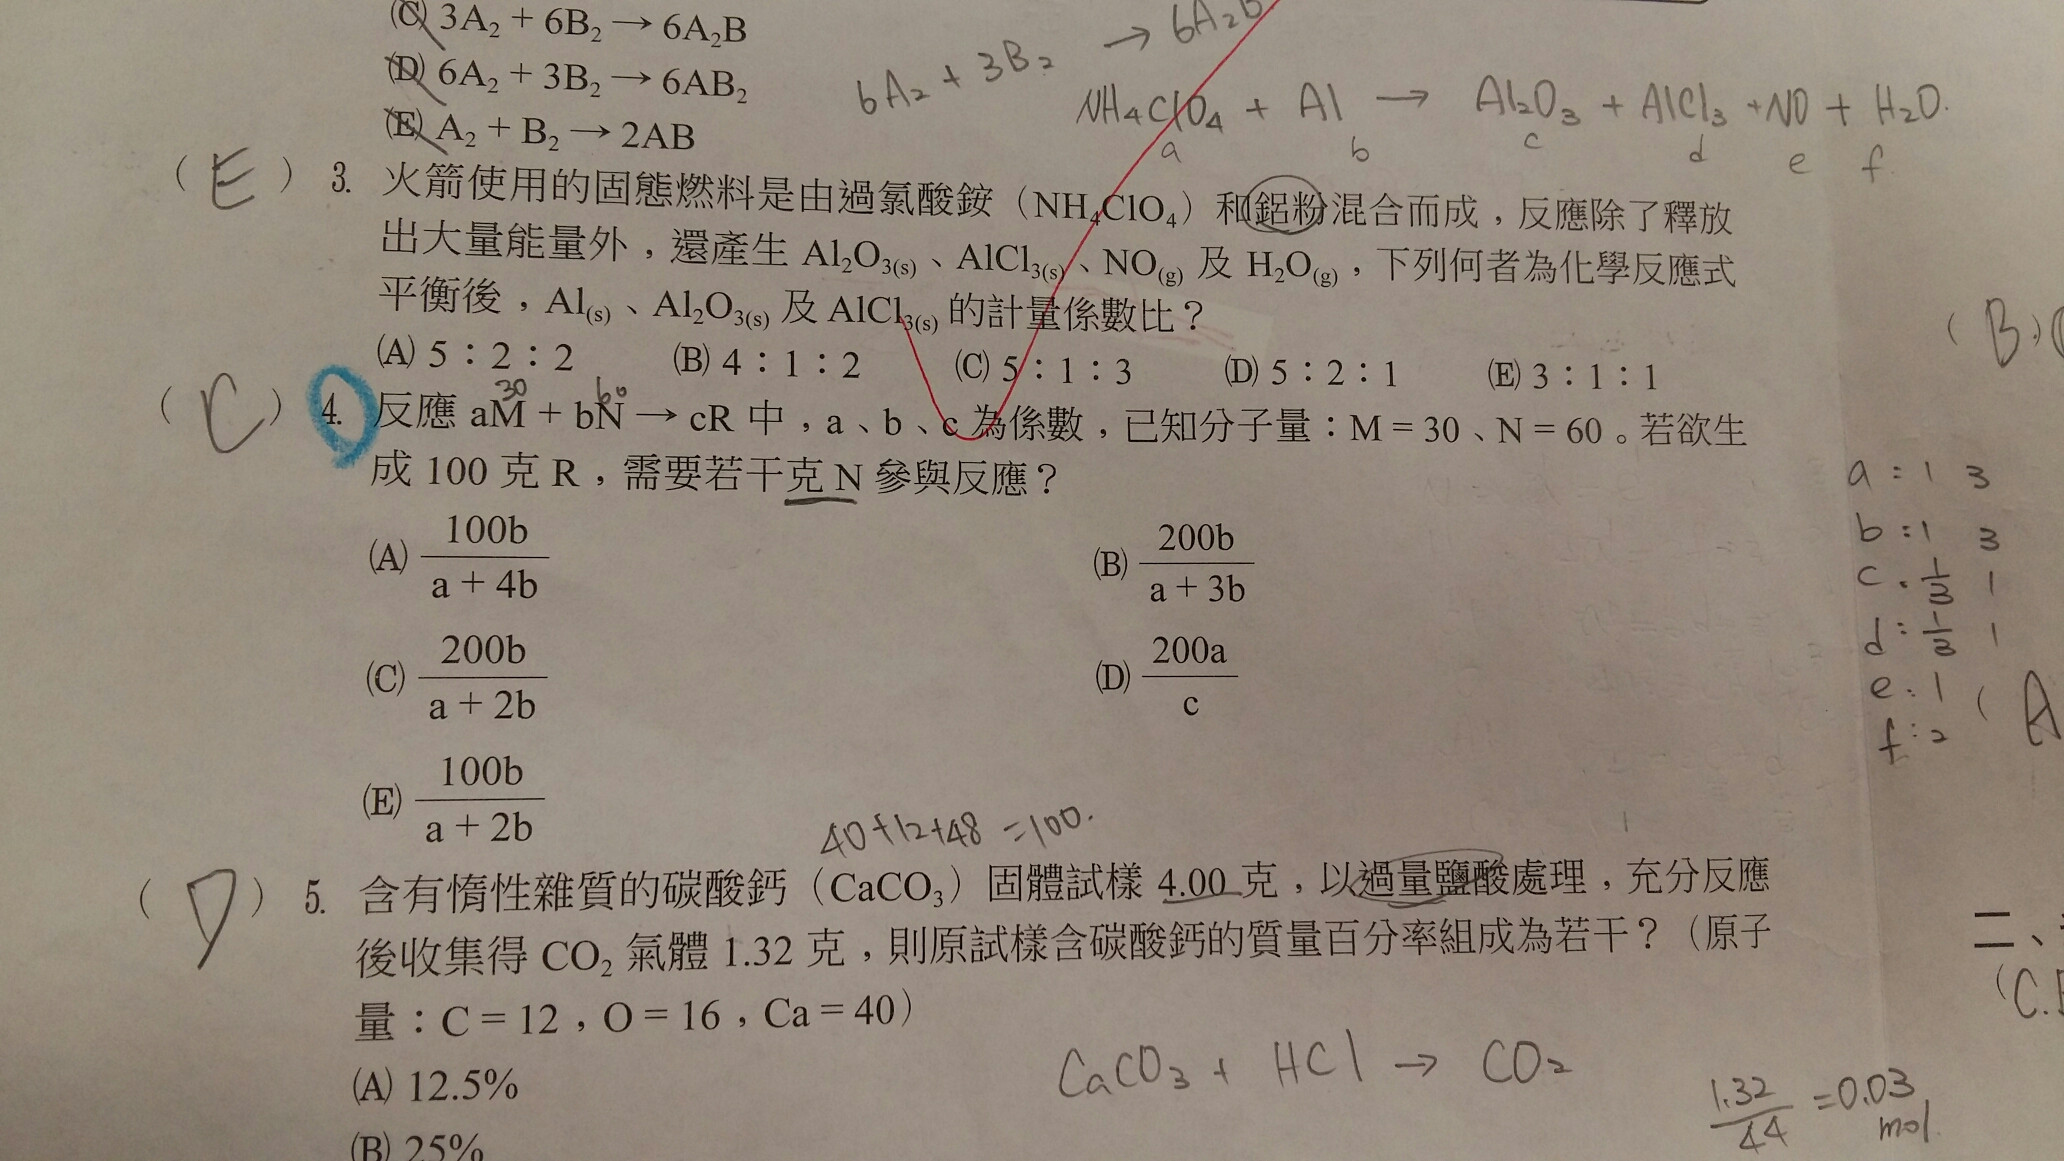 (C) 3A₂ + 6B₂ → 6A₂B
(D) 6A₂ + 3B₂ → 6AB₂
(E) A₂ + B₂ → 2AB
6A₂ + 3B₂ → 6A₂B
NH4ClO4 + Al → Al₂O₃ + AlCl₃ + NO + H₂O.
a b c d e f
( E ) 3. 火箭使用的固態燃料是由過氯酸銨（NH₄ClO₄）和鋁粉混合而成，反應除了釋放
出大量能量外，還產生 Al₂O₃(s)、AlCl₃(s)、NO(g) 及 H₂O(g)，下列何者為化學反應式
平衡後，Al(s)、Al₂O₃(s) 及 AlCl₃(s) 的計量係數比？
(A) 5：2：2 (B) 4：1：2 (C) 5：1：3 (D) 5：2：1 (E) 3：1：1
30 60
( C ) 4. 反應 aM + bN → cR 中，a、b、c 為係數，已知分子量：M = 30、N = 60。若欲生
成 100 克 R，需要若干克 N 參與反應？
(A) 100b / a + 4b (B) 200b / a + 3b
(C) 200b / a + 2b (D) 200a / c
(E) 100b / a + 2b
40+12+48 =100.
( D ) 5. 含有惰性雜質的碳酸鈣（CaCO₃）固體試樣 4.00 克，以過量鹽酸處理，充分反應
後收集得 CO₂ 氣體 1.32 克，則原試樣含碳酸鈣的質量百分率組成為若干？（原子
量：C = 12，O = 16，Ca = 40）
(A) 12.5%
(B) 25%
CaCO₃ + HCl → CO₂
1.32 / 44 = 0.03 mol
( B )
a : 1 3
b : 1 3
c : 1/3 1
d : 1/3 1
e : 1
f : 2
( A
二、
(C.